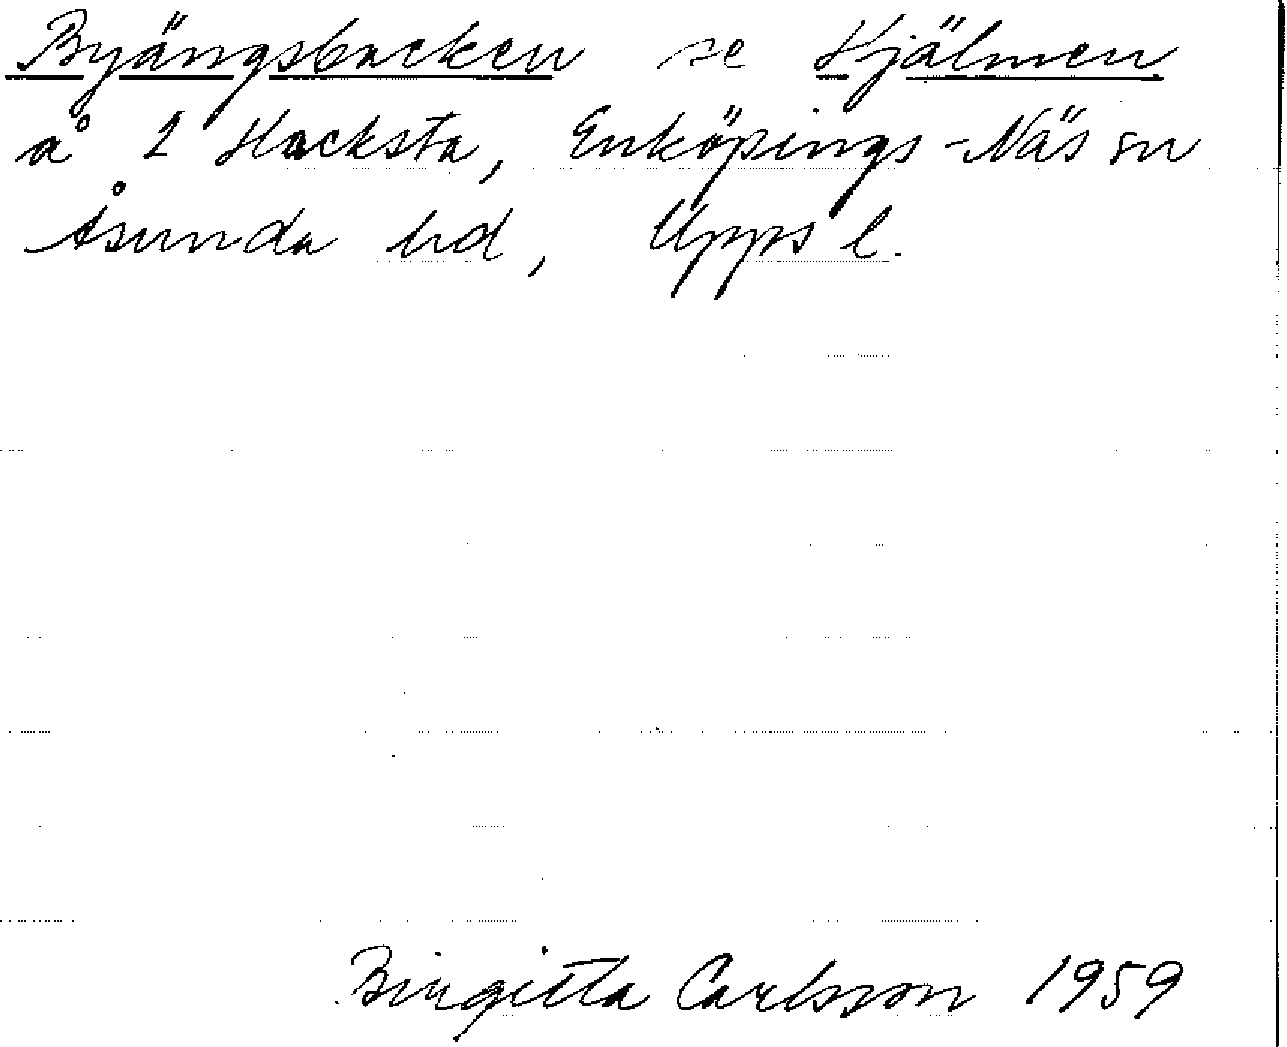 Byängsbacken se Hjälmen
å 2 Hacksta, Enköpings-Näs sn
Åsunda hd, Upps l.
Birgitta Carlsson 1959